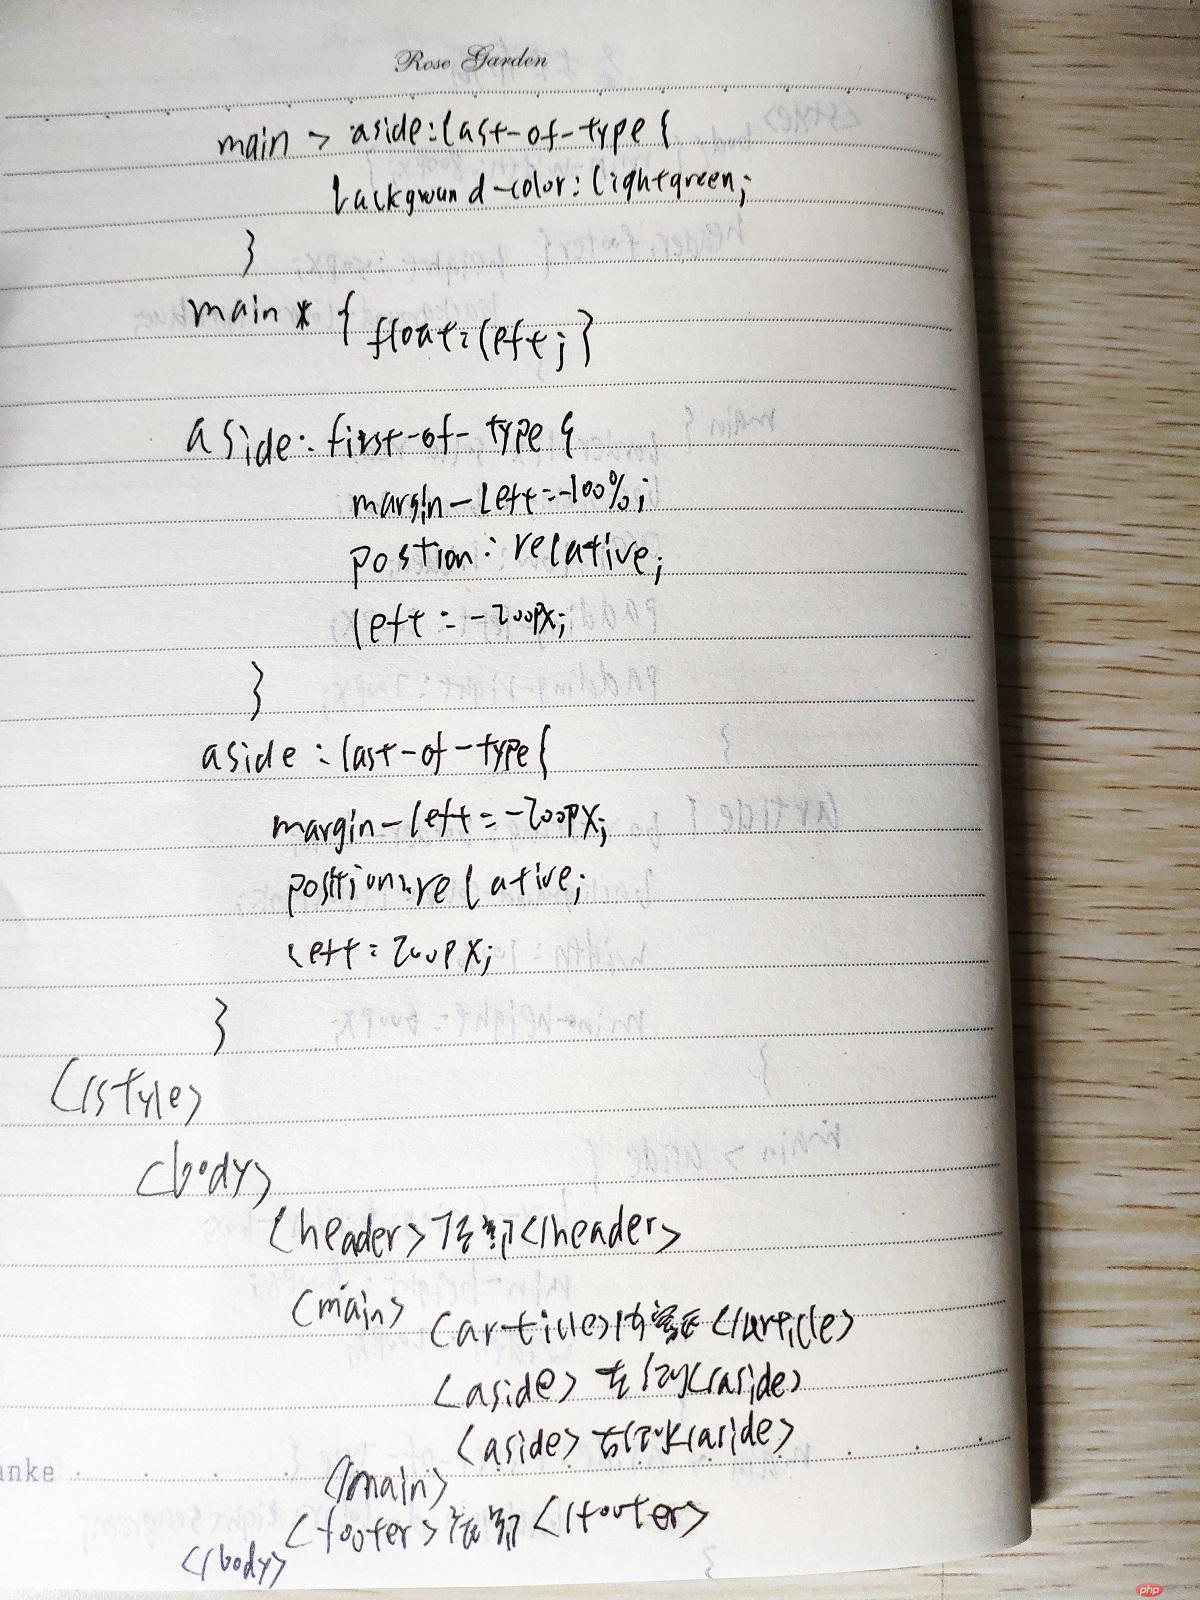 Rose Garden
main > aside:last-of-type {
background-color: lightgreen;
}
main * { float:left; }
aside: first-of-type {
margin-left:-100%;
postion: relative;
left:-200px;
}
aside:last-of-type{
margin-left:-200px;
position:relative;
left:200px;
}
</style>
<body>
<header>头部</header>
<main> <article>内容区</article>
<aside>左侧</aside>
<aside>右侧</aside>
</main>
<footer>底部</footer>
</body>
anke
php